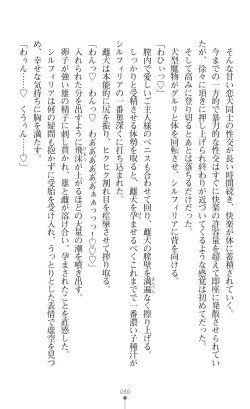 そんな甘い恋犬同士の性交が長い時間続き、快楽が体に蓄積されていく。
今までの一方的で暴力的な性交はすぐに快楽の許容量を超えて即座に発散させられてい
たが、徐々に頂きに押し上げられ終わりが近づいてくるような感覚は初めてだった。
そして高みに登りきるとあとは落ちるだけだった。
「わひぃっ♡」
犬型魔物がグルリと体を回転させ、シルフィリアに背を向ける。
膣内で愛しいご主人様のペニスも合わせて回り、雌犬の膣壁を満遍なく擦り上げる。
しっかりと受精させる体勢を取ると、雌犬を孕ませるべくこれまで一番濃い子種汁が
シルフィリアの一番奥深くに打ち込まれた。
雌犬は本能的に尻を振り、ヒクヒク割れ目を痙攣させて搾り取る。
「わんっ♡ わんっ♡
入れられた分を出すように飛沫が上がるほどの大量の潮を噴き出す。
卵子が強い雄の精子に刺し貫かれ、雄と雌が溶け合い、孕まされたことを直感した。
シルフィリアは何の疑問も抱かずに を受け入れ、うっとりとした表情で虚空を見つ
め、幸せな気持ちに胸を満たす。
「わぅん……♡ くぅん……♡」
060